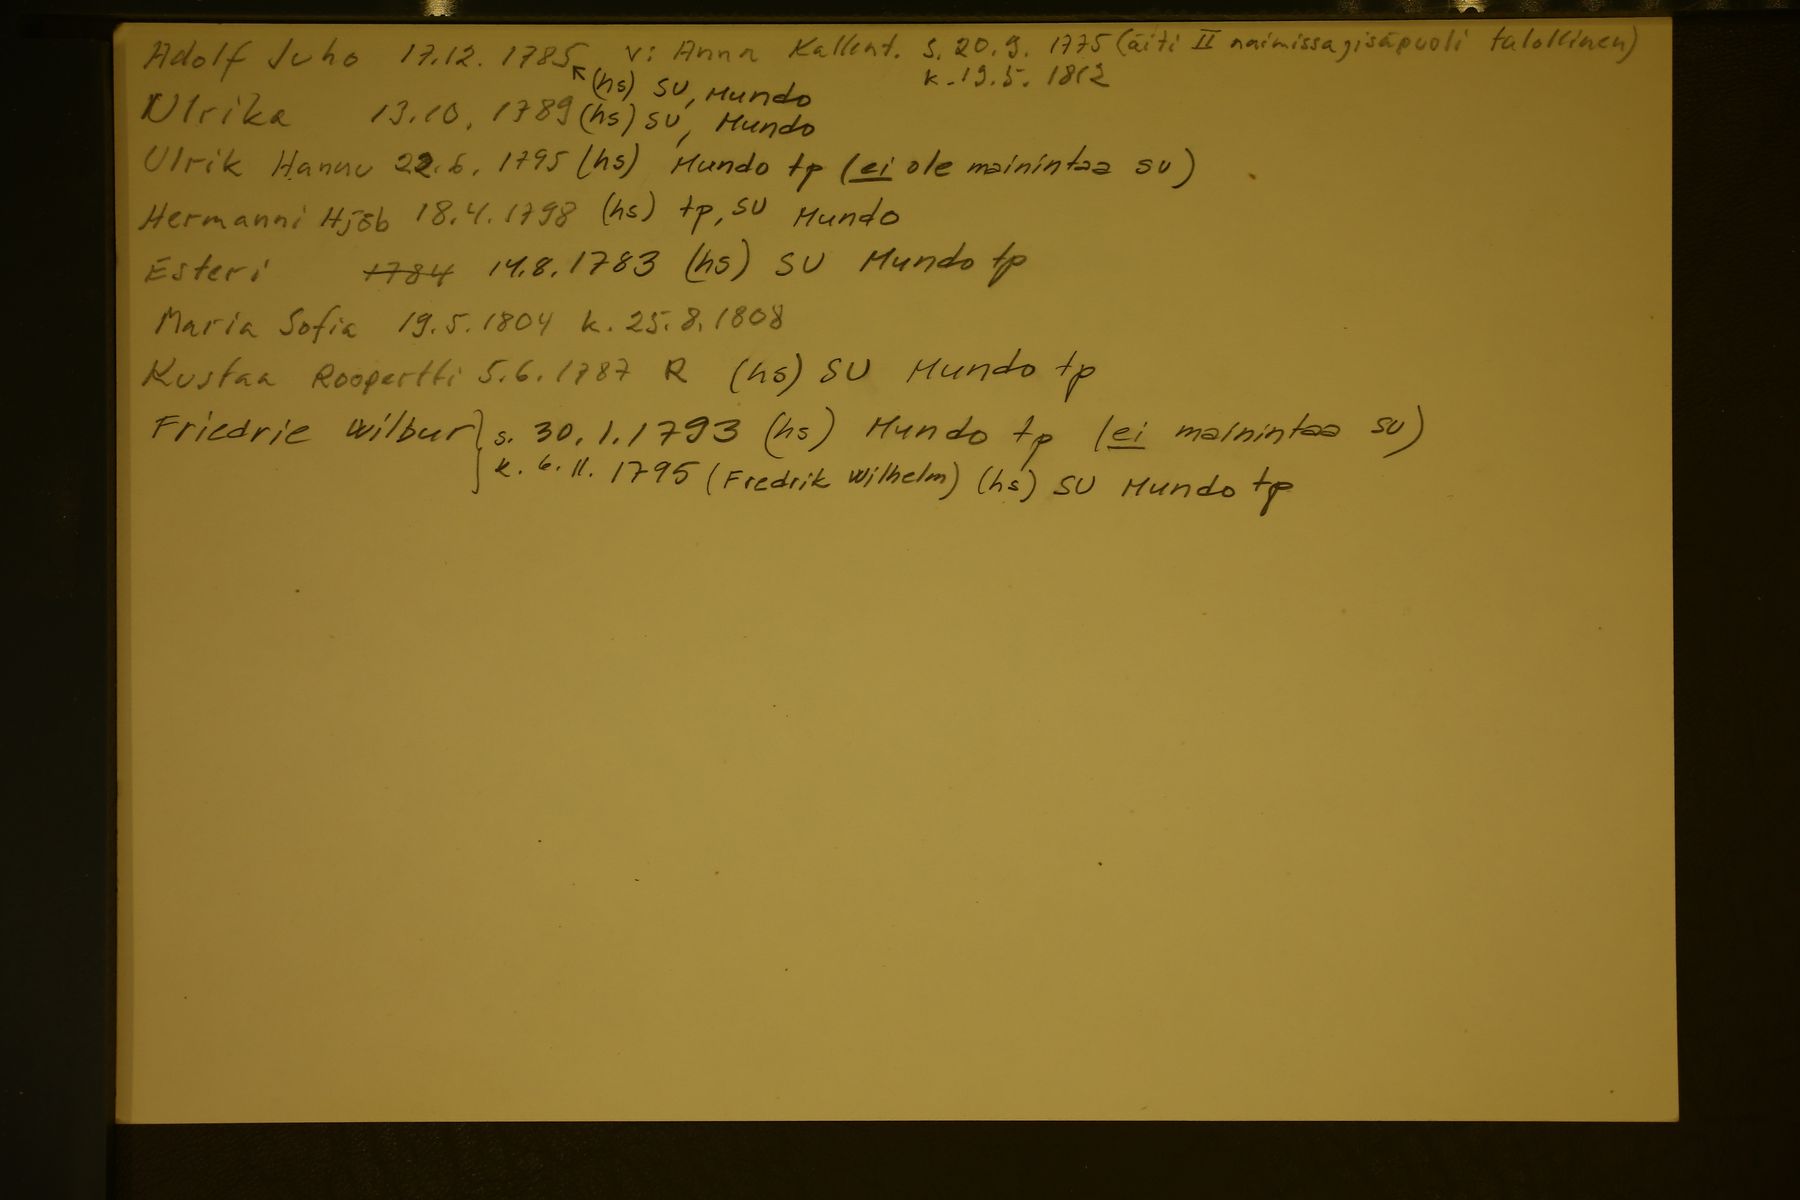 Adolf Juho 17.12. 1785 v: Anna Kallent. s. 20.9. 1775 (äiti II naimissa, isäpuoli talollinen)
k. 19.5. 1812
↖ (hs) SU, Mundo
Ulrika 13.10. 1789 (hs) SU, Mundo
Ulrik Hannu 22.6. 1795 (hs) Mundo tp (ei ole mainintaa SU)
Hermanni Hjöb 18.4.1798 (hs) tp, SU Mundo
Esteri 1784 14.8.1783 (hs) SU Mundo tp
Maria Sofia 19.5.1804 k. 25.8.1808
Kustaa Roopertti 5.6.1787 R (hs) SU Mundo tp
Friedrie Wilbur } s. 30.1.1793 (hs) Mundo tp (ei mainintaa SU)
k. 6.11. 1795 (Fredrik Wilhelm) (hs) SU Mundo tp